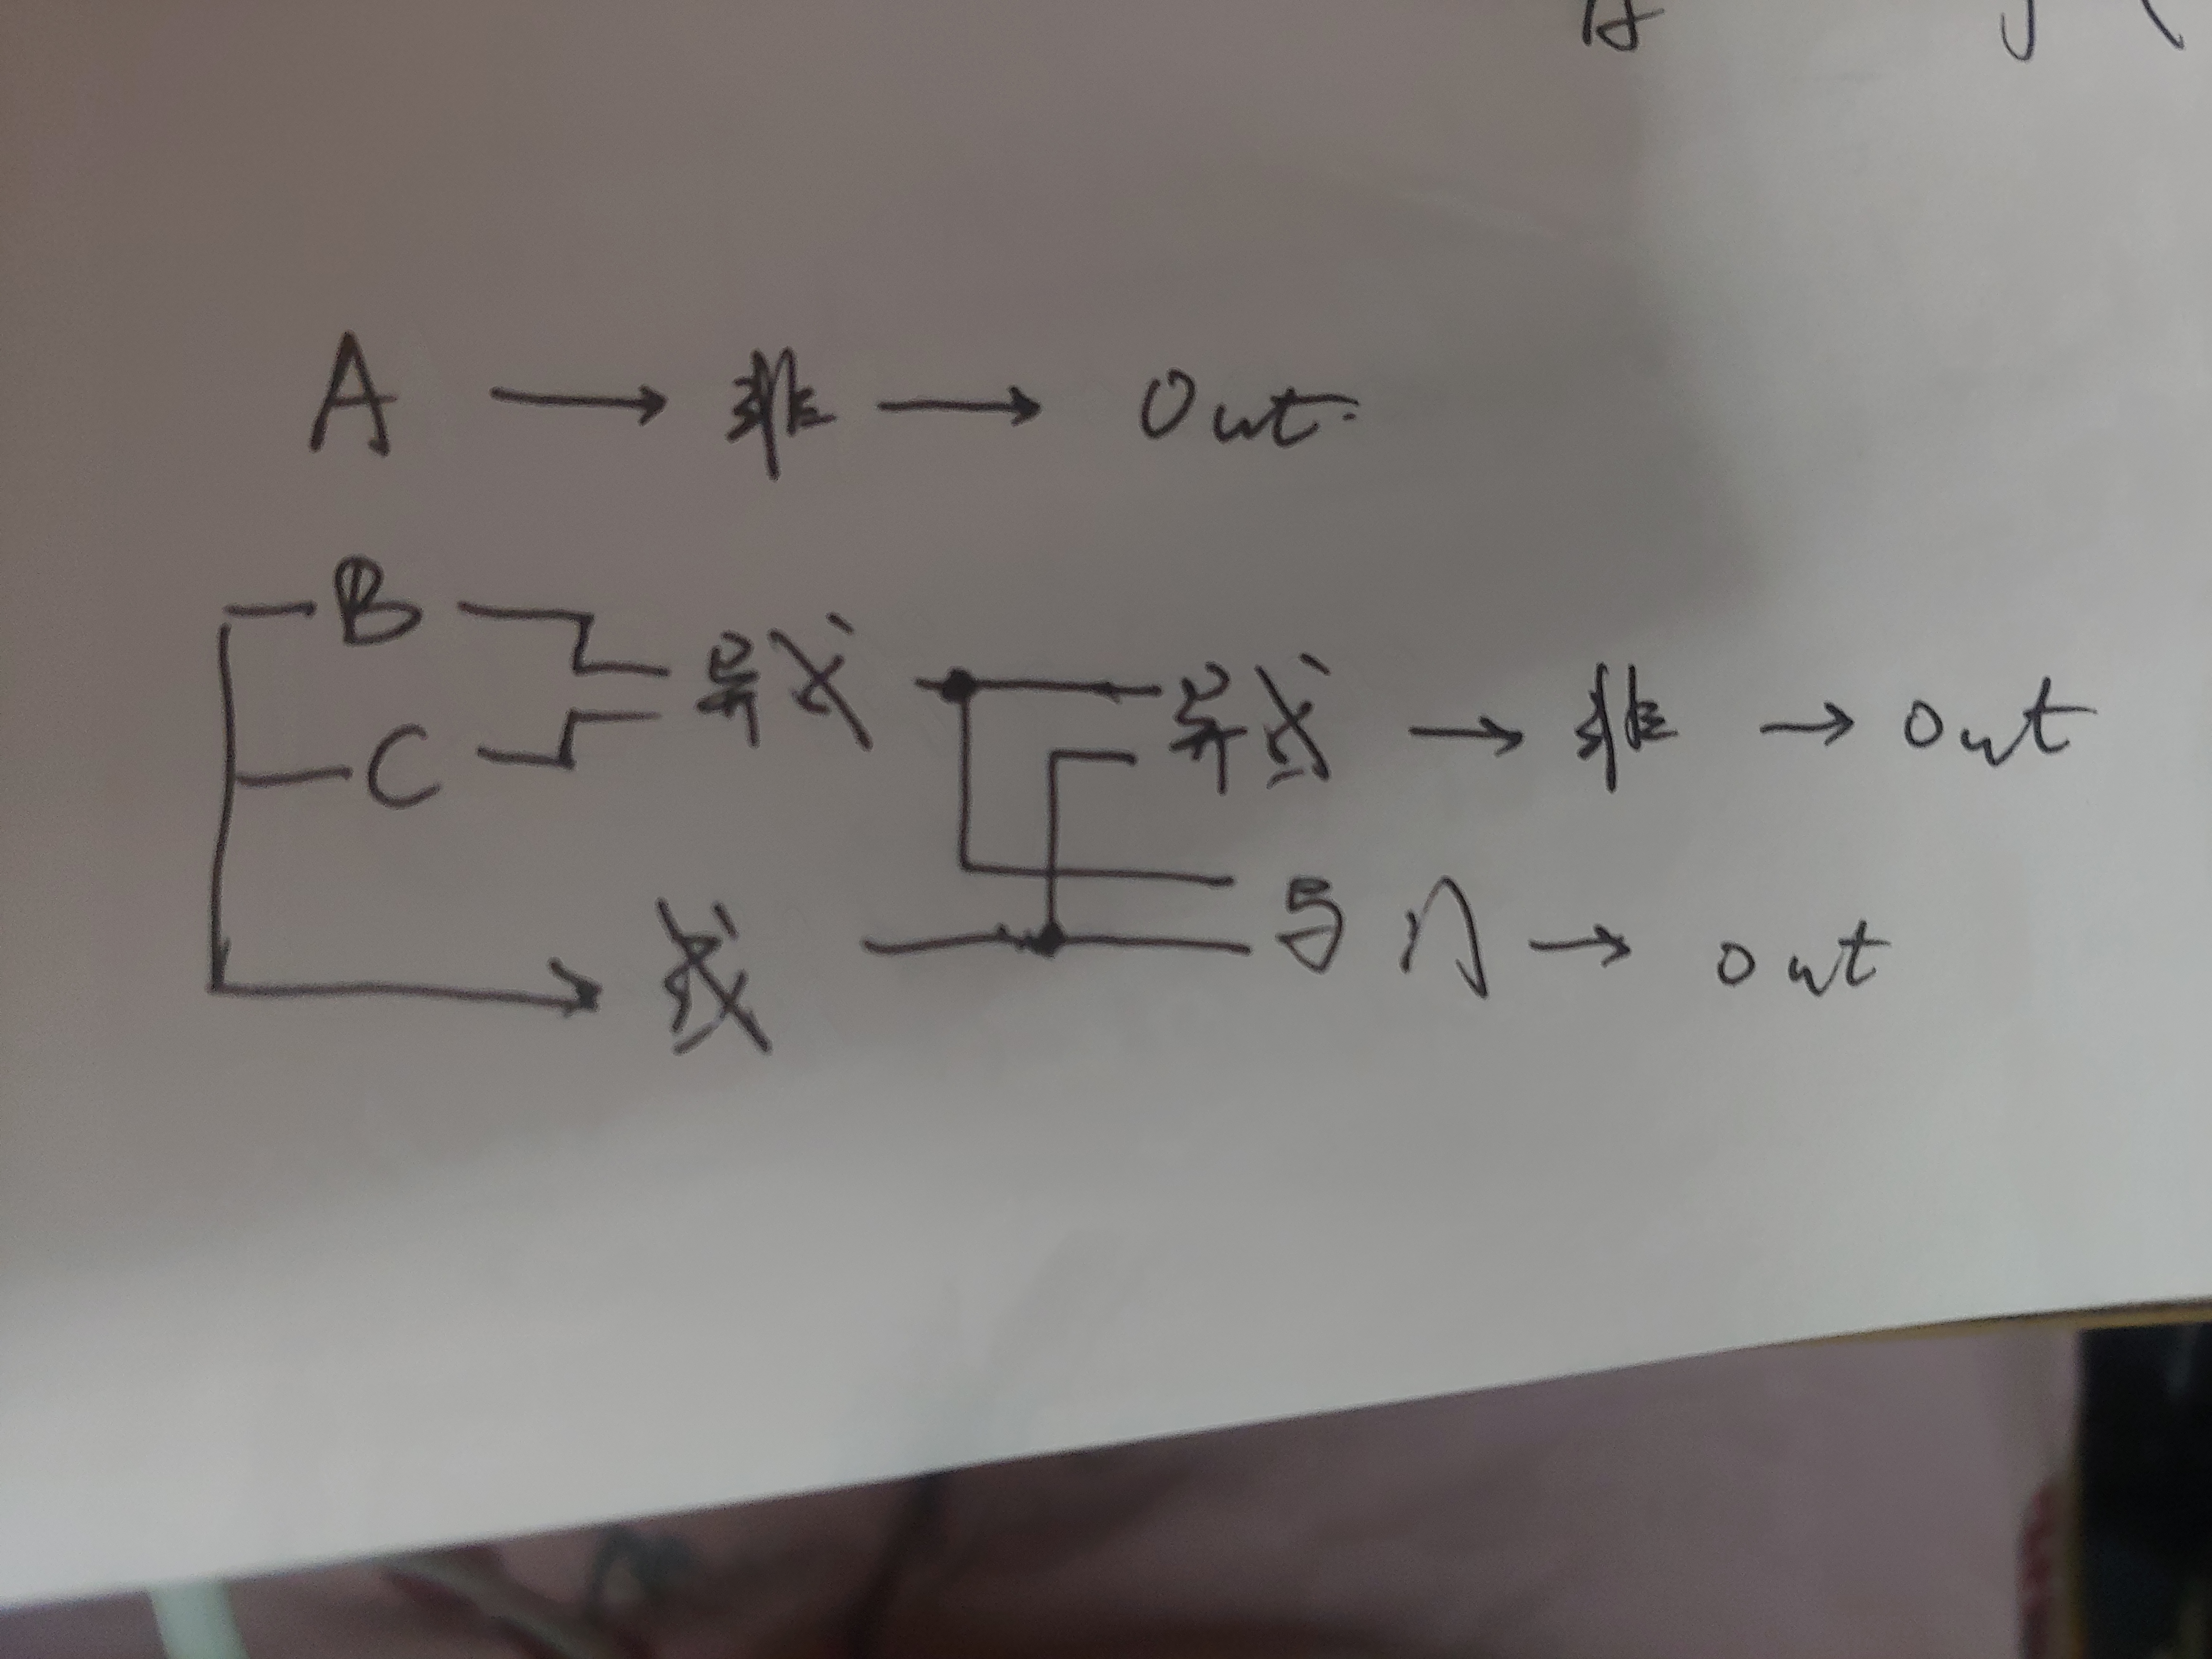 A → 非 → Out.
B 异或 异或 → 非 → out
C
或 与门 → out